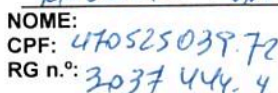 NOME:
CPF: 470525039.72
RG n.º: 3037 444.4